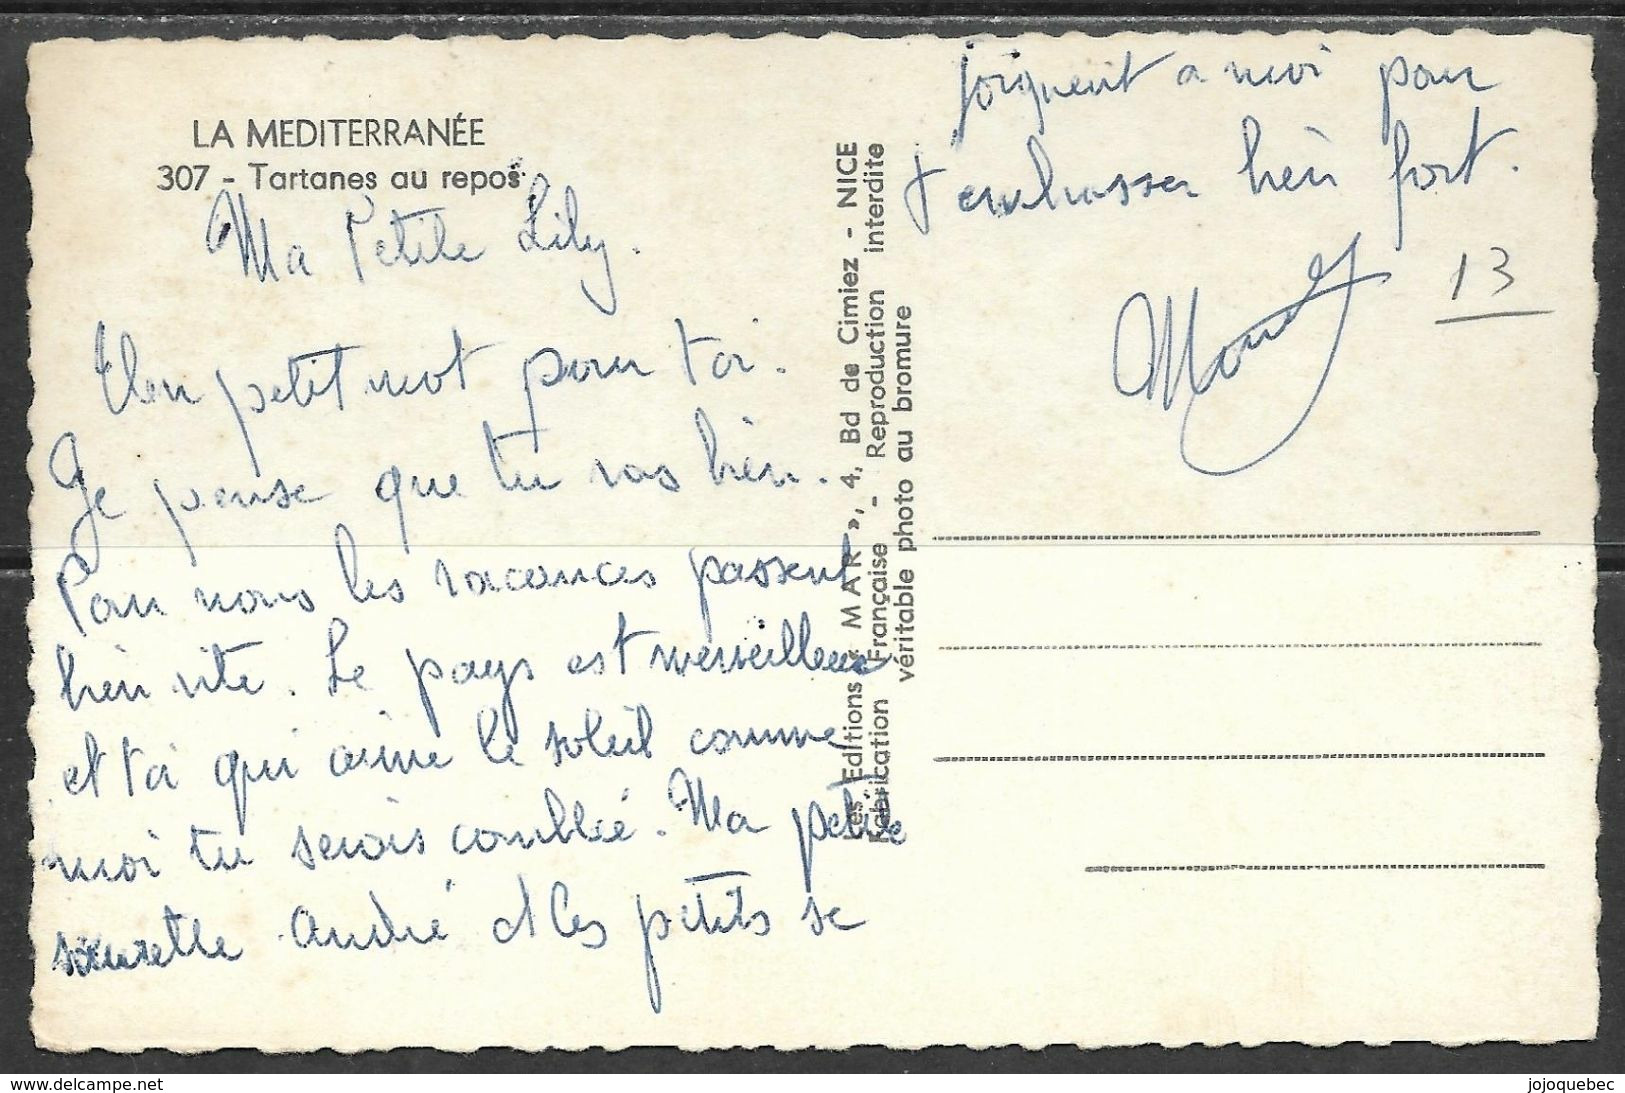 LA MEDITERRANÉE
307 - Tartanes au repos
Ma Petite Lily.
Un petit mot pour toi.
Je pense que tu vas bien.
Pour nous les vacances passent
bien vite. Le pays est merveilleux
et toi qui aime le soleil comme
moi tu serais comblée. Ma petite
sœurette André et les petits se
joignent a moi pour
t'embrasser bien fort.
13
Les Editions « MAR », 4, Bd de Cimiez - NICE
Fabrication Française - Reproduction interdite
véritable photo au bromure
www.delcampe.net
jojoquebec